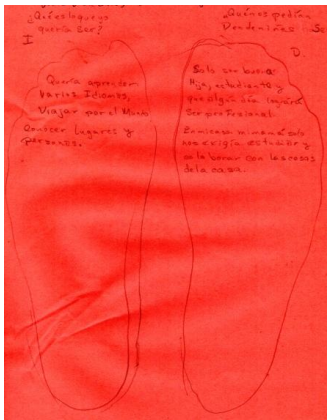 ¿Qué es lo que yo
quería ser?
I
Quería aprender
Varios Idiomas,
Viajar por el Mundo
Conocer lugares y
personas.
¿Qué nos pedían
De de niñas Se
D.
Solo ser buena
Hija, estudiante y
que algún día lograra
Ser profesional.
En mi casa mi mamá solo
nos exigía estudiar y
colaborar con las cosas
de la casa.